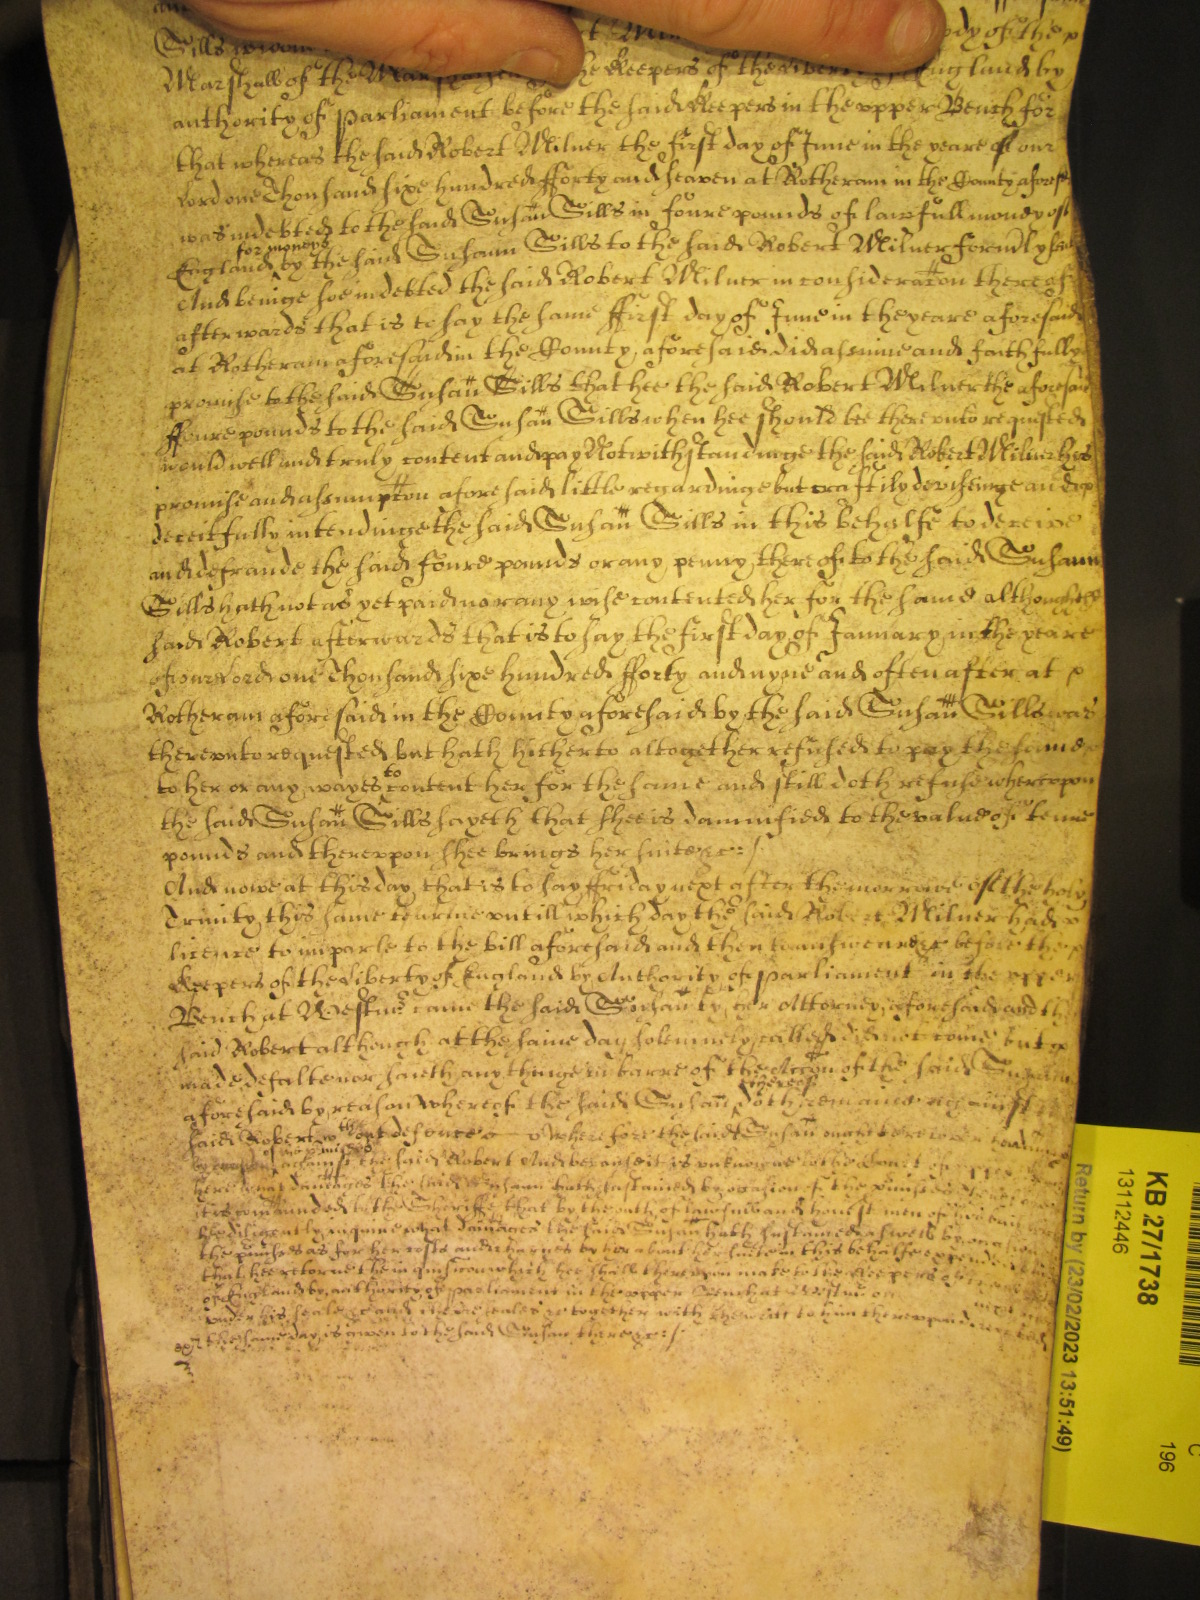 Sills
Marshall of the he Keepers of the England by
authority of Parliament before the said Keepers in the vpper Bench for
that whereas the said Robert Milner the first day of June in the yeare of our
Lord one Thousand sixe hundred fforty and seaven at Rotheram in the County afores
was indebted to the said Susan Sills in foure pounds of lawfull money of
for moneys
England by the said Susann Sills to the said Robert Milner formly
And beinge soe indebted the said Robert Milner in consideracon thereof
afterwards that is to say the same ffirst day of June in the yeare aforesaid
at Rotheram aforesaid in the County aforesaid did assume and faithfully
promise to the said Susan Sills that hee the said Robert Milner the aforesaid
ffoure pounds to the said Susan Sills when hee should bee therevnto requested
would well and truly content and pay Notwithstandinge the said Robert Milner his
promise and assumpcon aforesaid little regardinge but craftily devisinge and
deceitfully intendinge the said Susan Sills in this behalfe to deceive
and defraude the said foure pounds or any penny thereof to the said Susann
Sills hath not as yet paid nor any wise contented her for the same although
said Robert afterwards that is to say the first day of January in the yeare
of our Lord one Thousand sixe hundred fforty and nyne and often after at
Rotheram aforesaid in the County aforesaid by the said Susan Sills was
therevnto requested but hath hitherto altogether refused to pay the same
to her or any wayes to content her for the same and still doth refuse wherevpon
the said Susan Sills sayeth that shee is damnified to the value of tenne
pounds and therevpon shee brings her suite &c:
And nowe at this day that is to say ffriday next after the morrowe of the holy
Trinity this same tearme vntill which day the said Robert Milner had
licence to imparle to the bill aforesaid and then to answeare &c before the
Keepers of the liberty of England by Authority of Parliament in the vpper
Bench at Westmr came the said Susan by her Attorney aforesaid and the
said Robert although at the same day solemnely called did not come but
made defalte nor saieth any thinge in barre of the Accon of the said Susann
aforesaid by reason whereof the said Susan doth remaine against
said Robert without defence Wherefore the said Susan ought to recover
against the said Robert And because it is vnknowne to the Court of vpper
here what damages the said Susann hath sustained by occasion of the
it is commaunded to the Sheriffe that by the oath of
hee diligently inquire what damages the said Susan hath sustained aswell by occasion
the as for her costs and charges by her about her suite in this behalfe expended
that hee returne the inquisicon which hee shall therevpon make to the Keepers
of England by authority of Parliament in the vpper Bench at Westmr on
vnder his seale &c and together with the writt to him therevpon directed
the same day is given to the said Susan there &c:
KB 27/1738
13112446
Return by (23/02/2023 13:51:49)
C
196